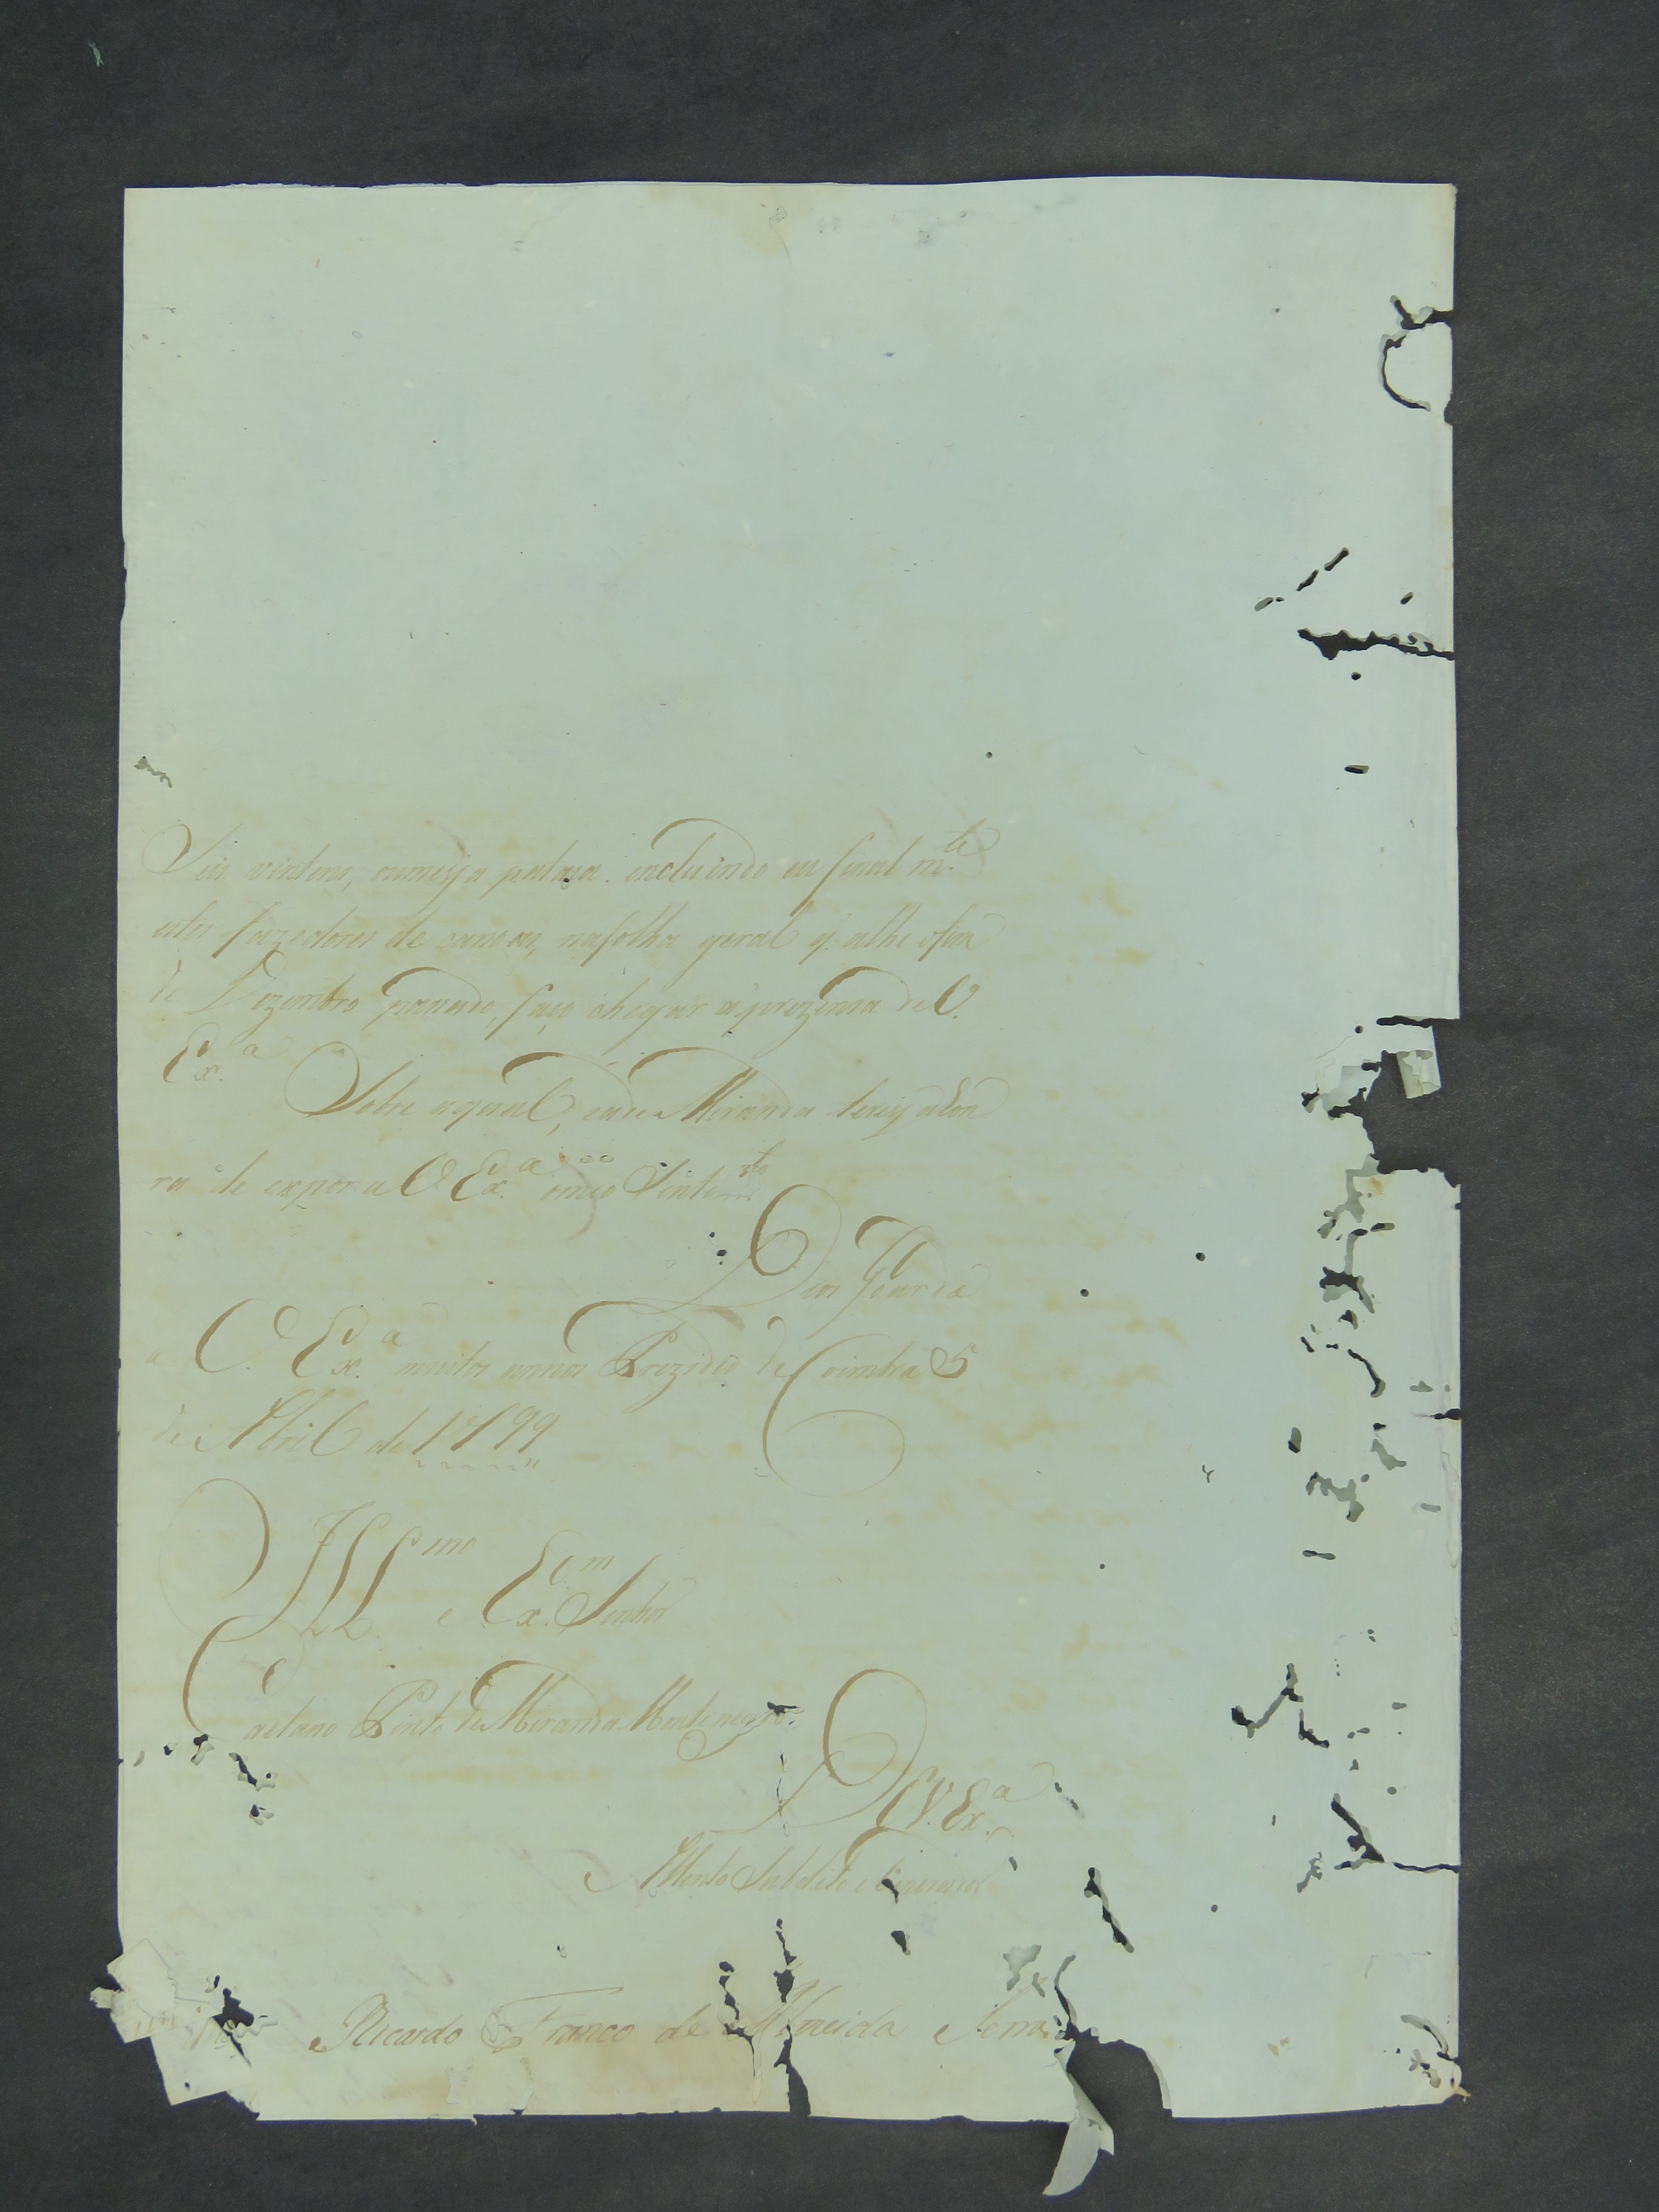 Seis vintens, e meya pataca incluindo em final m.te
estes fazedores de canoas, na folha geral q. athe o fim
de Dezembro passado, faço chegar a prezença de V.
Ex.a
Sobre a qual, e de Miranda terey a hon
ra de expor a V. Ex.a
Deos Guarde
a V. Ex.a muitos annos Prezidio de Coimbra 5
de Abril de 1799
Ill.mo e Ex.mo Senhor
Caetano Pinto de Miranda Montenegro.
De V. Ex.a
Attento Subdito e Venerador
Ricardo Franco de Almeida Serra